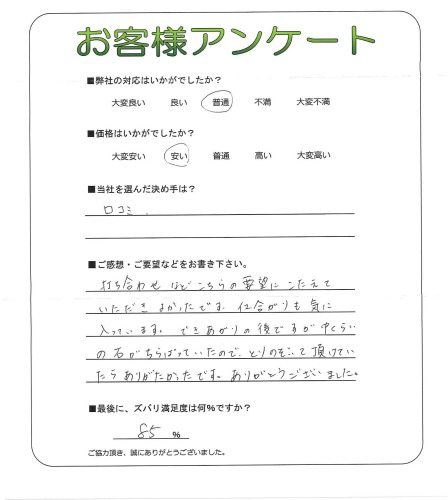 お客様アンケート
■弊社の対応はいかがでしたか？
大変良い 良い 普通 不満 大変不満
■価格はいかがでしたか？
大変安い 安い 普通 高い 大変高い
■当社を選んだ決め手は？
口コミ.
■ご感想・ご要望などをお書き下さい。
打ち合わせなどこちらの要望にこたえて
いただきよかったです。仕合がりも気に
入っています。できあがりの後ですが中くらい
の石がちらばっていたので、とりのぞいて頂けてい
たらありがたかったです。ありがとうございました。
■最後に、ズバリ満足度は何%ですか？
85 %
ご協力頂き、誠にありがとうございました。